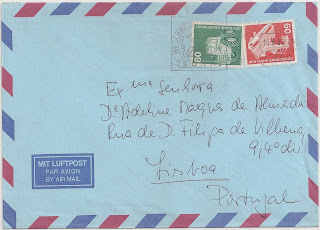 80
60
DEUTSCHE BUNDESPOST
Ex ma Senhora
Dª Adeline Maqua de Almeida
Rua de D. Filipa de Vilhena
9, 4º dt
Lisboa
Portugal
MIT LUFTPOST
PAR AVION
BY AIR MAIL